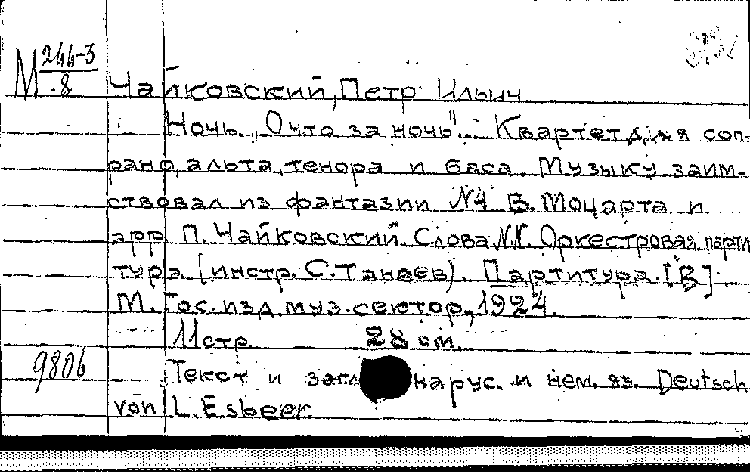 М 244-3
8
Чайковский, Петр Ильич
Ночь. "О что за ночь"... Квартет для соп-
рано, альта, тенора и баса. Музыку заим-
ствовал из фантазии №4 В. Моцарта и
арр П. Чайковский. Слова N.N. Оркестровая парти
тура. [инстр. С. Танеев). Партитура. [В]
М. Гос. изд. муз. сектор, 1924.
11 стр. 28 cm.
9806
Текст и загл на рус. и нем. яз. Deutsch
von L. Esbeer.